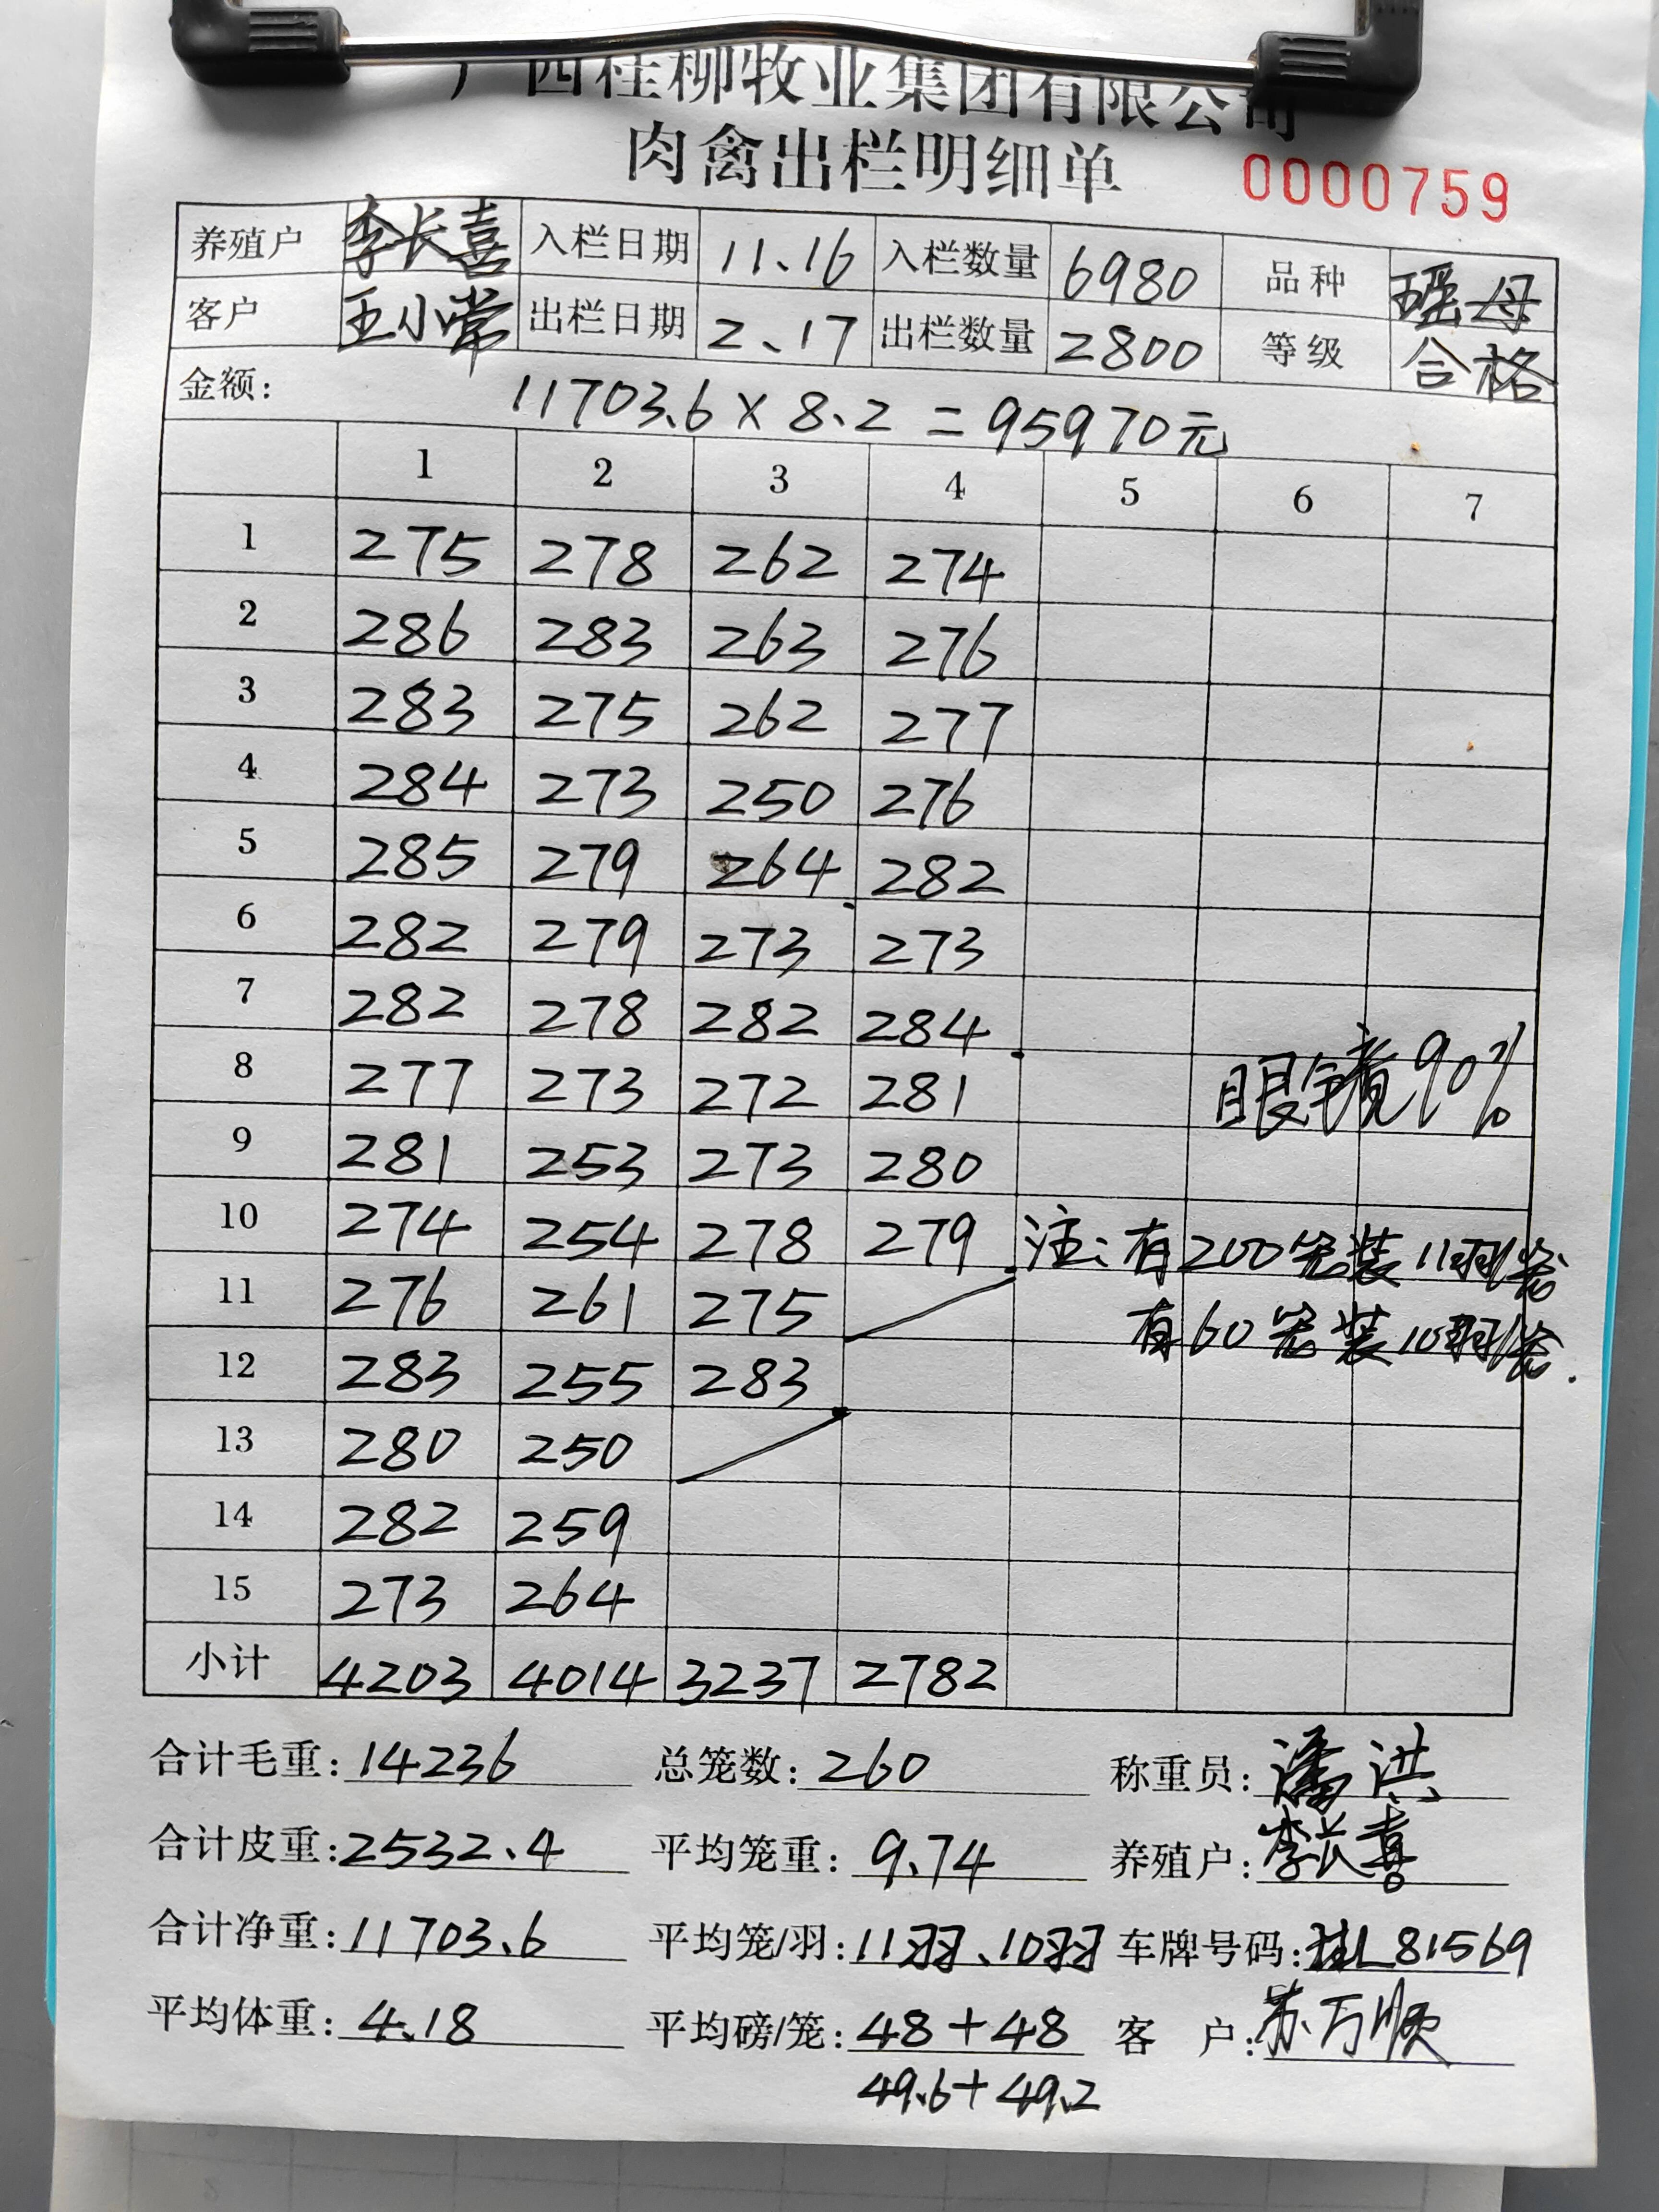 广西桂柳牧业集团有限公司
肉禽出栏明细单 0000759
养殖户 李长喜 入栏日期 11.16 入栏数量 6980 品种 瑶母
客户 王小常 出栏日期 2.17 出栏数量 2800 等级 合格
金额: 11703.6×8.2=95970元
1 2 3 4 5 6 7
1 275 278 262 274
2 286 283 263 276
3 283 275 262 277
4 284 273 250 276
5 285 279 264 282
6 282 279 273 273
7 282 278 282 284
8 277 273 272 281 眼镜90%
9 281 253 273 280
10 274 254 278 279 注:有200笼装11羽/笼
11 276 261 275 有60笼装10羽/笼.
12 283 255 283
13 280 250
14 282 259
15 273 264
小计 4203 4014 3237 2782
合计毛重:14236 总笼数:260 称重员:潘洪
合计皮重:2532.4 平均笼重:9.74 养殖户:李长喜
合计净重:11703.6 平均笼/羽:11羽、10羽 车牌号码:桂L81569
平均体重:4.18 平均磅/笼:48+48 客户:苏万顺
49.6+49.2